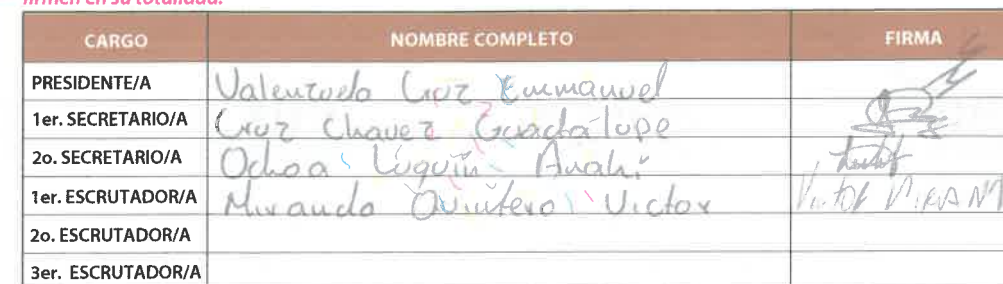 firmen en su totalidad.
CARGO NOMBRE COMPLETO FIRMA
PRESIDENTE/A Valenzuela Cruz Emmanuel
1er. SECRETARIO/A Cruz Chavez Guadalupe
2o. SECRETARIO/A Ochoa Luquín Anahí
1er. ESCRUTADOR/A Miranda Quintero Victor VICTOR MIRAN
2o. ESCRUTADOR/A
3er. ESCRUTADOR/A